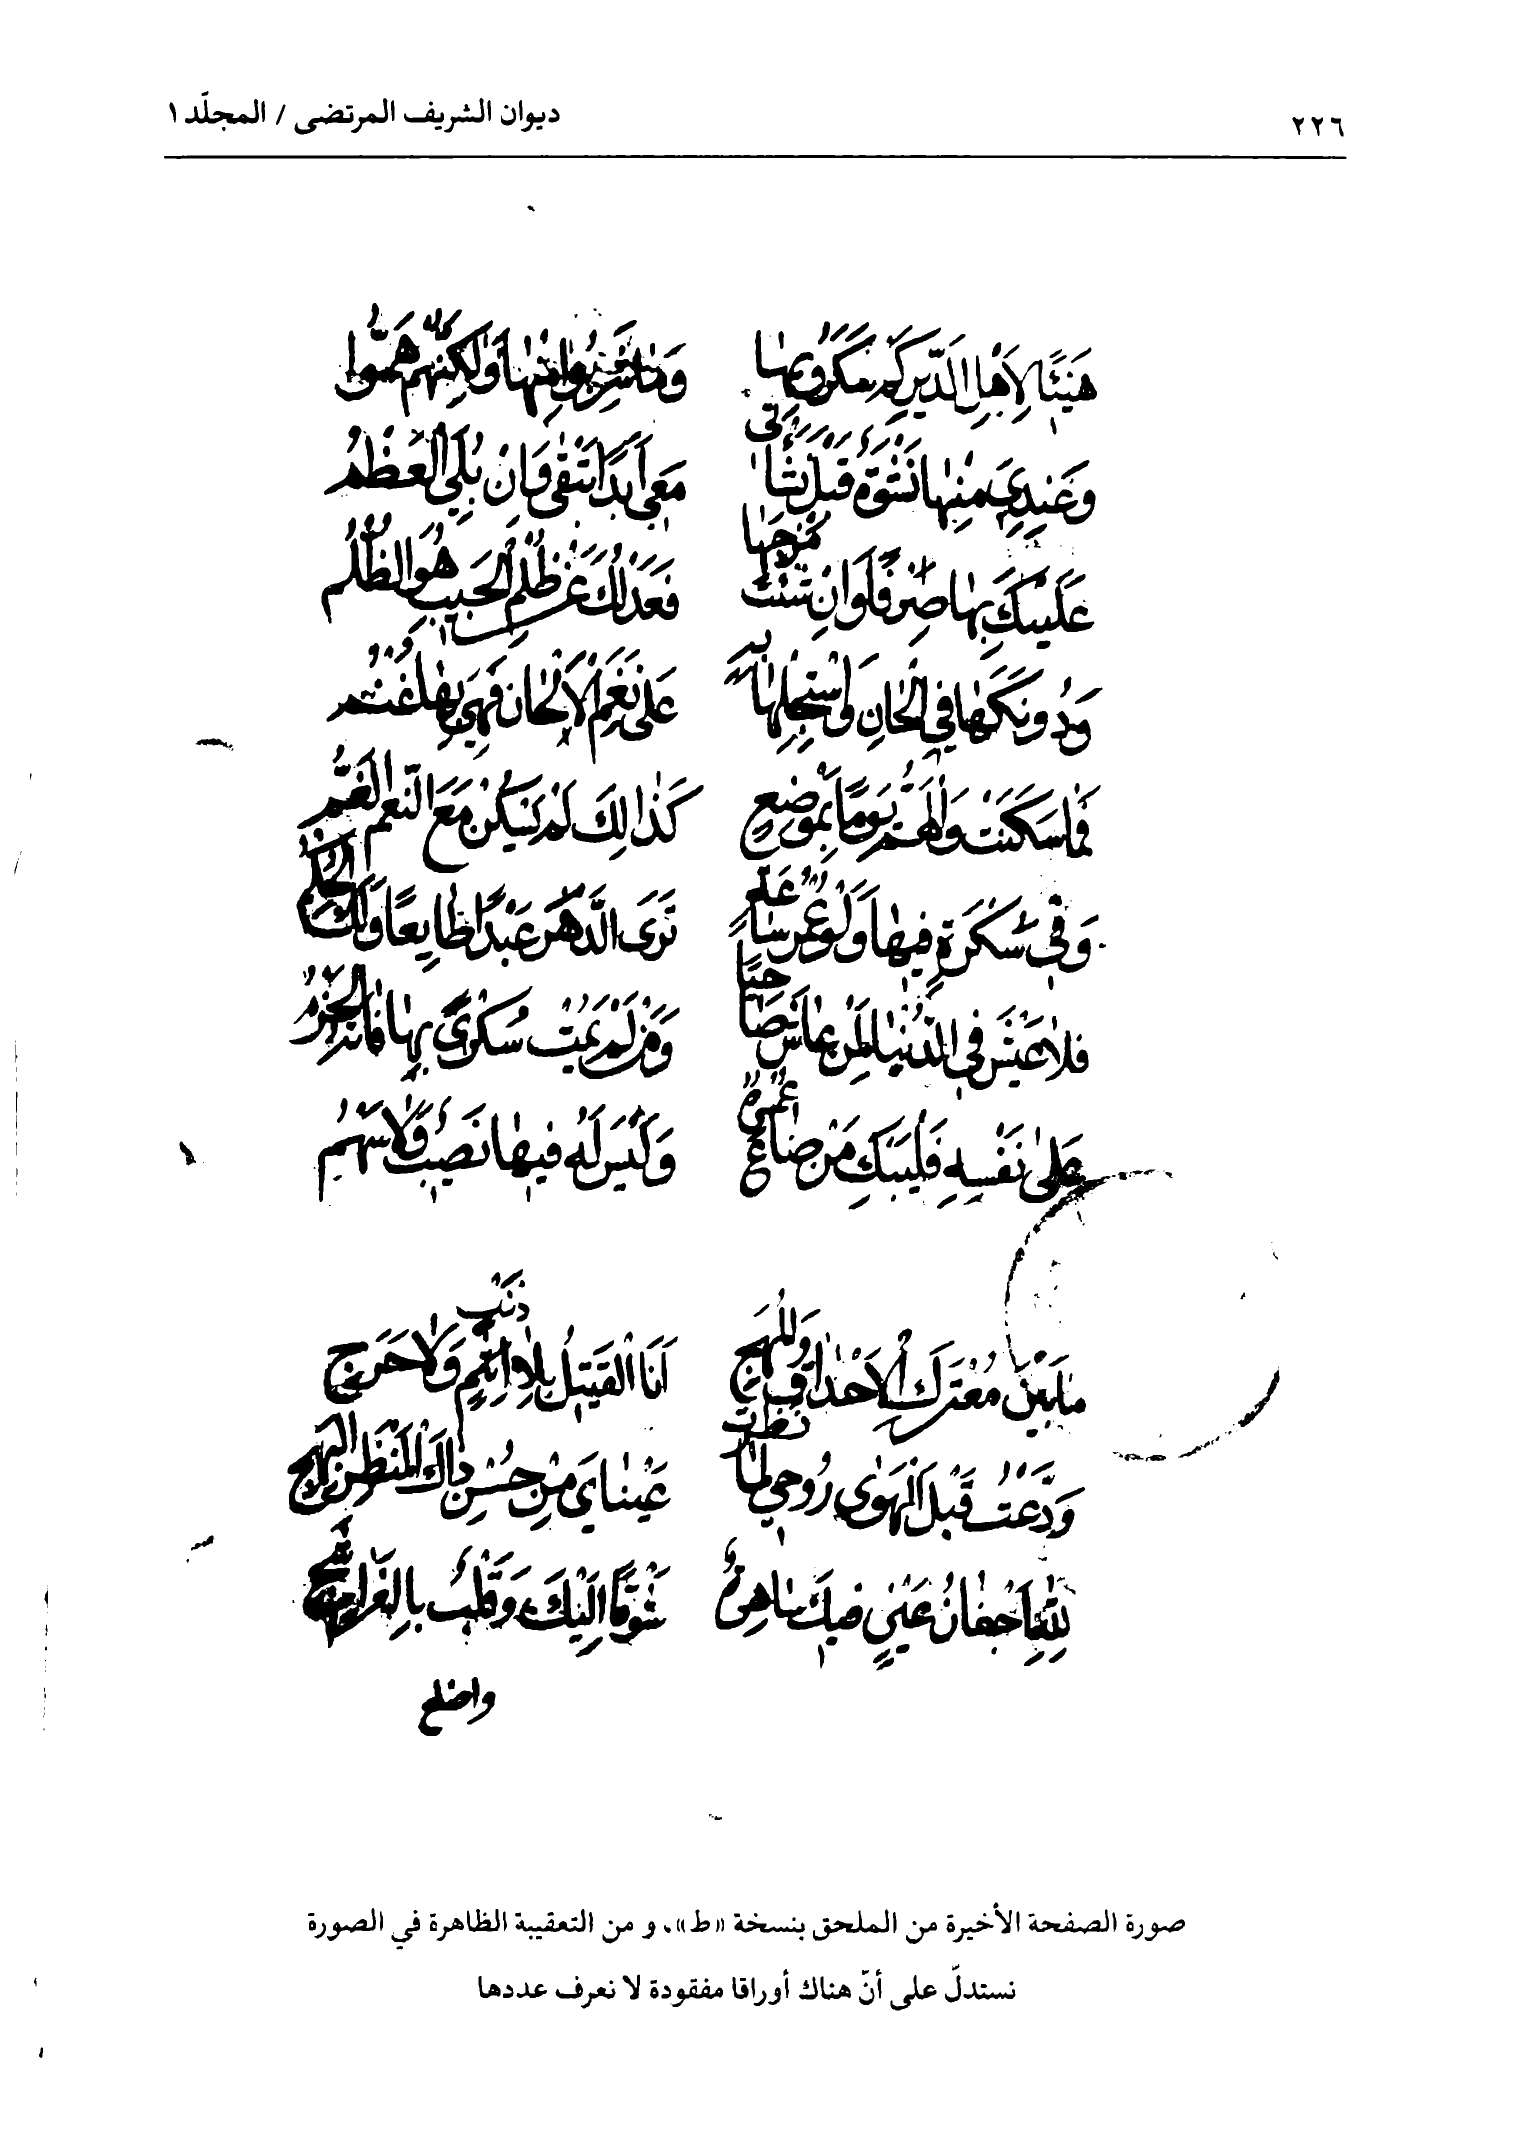 ٢٢٦ ديوان الشريف المرتضى / المجلّد ١
هَنِيئًا لِأَهْلِ الدَّيْرِ كَمْ سَكَرُوا بِهَا وَمَا شَرِبُوا مِنْهَا وَلٰكِنَّهُمْ هَمُّوا
وَعِنْدِي مِنْهَا نَشْوَةٌ قَبْلَ نَشْأَتى مَعِي أَبَدًا تَبْقَى وَانْ بُلِيَ الْعَظْمُ
عَلَيْكَ بِهَا صِرْفًا وَانْ شِئْتَ مَزْجَهَا فَعَدْلُكَ عَنْ ظَلْمِ الْحَبِيبِ هُوَ الظُّلْمُ
وَدُونَكَهَا فِي الْحَانِ وَاسْتَجْلِهَا بِهِ عَلَى نَغَمِ الْأَلْحَانِ فَهْيَ بِهَا غُنْمُ
فَمَا سَكَنَتْ وَالْهَمُّ يَوْمًا بِمَوْضِعٍ كَذَالِكَ لَمْ يَسْكُنْ مَعَ النَّغَمِ الْغَمُّ
وَفِي سَكْرَةٍ فِيهَا وَلَوْ عُمْرَ سَاعَةٍ تَرَى الدَّهْرَ عَبْدًا طَايِعًا وَلَكَ الْحُكْمُ
فَلَا عَيْشَ فِي الدُّنْيَا لِمَنْ عَاشَ صَاحِيًا وَمَنْ لَمْ يَمُتْ سُكْرًا بِهَا فَاتَهُ الْحَزْمُ
عَلَى نَفْسِهِ فَلْيَبْكِ مَنْ ضَاعَ عُمْرُهُ وَلَيْسَ لَهُ فِيهَا نَصِيبٌ وَلَا سَهْمُ
مَا بَيْنَ مُعْتَرَكِ الْأَحْدَاقِ وَالْمُهَجِ أَنَا الْقَتِيلُ بِلَا اثْمٍ وَلَا حَرَجِ
ذنب
وَدَّعْتُ قَبْلَ الْهَوَى رُوحِي لِمَا نَظَرَتْ عَيْنَايَ مِنْ حُسْنِ ذَاكَ الْمَنْظَرِ الْبَهِجِ
لِلّٰهِ أَجْفَانُ عَيْنٍ فِيكَ سَاهِرَةٌ شَوْقًا الَيْكَ وَقَلْبٌ بِالْغَرَامِ شَجِ
واضلع
صورة الصفحة الأخيرة من الملحق بنسخة «ط»، و من التعقيبة الظاهرة في الصورة
نستدلّ على أنّ هناك أوراقا مفقودة لا نعرف عددها